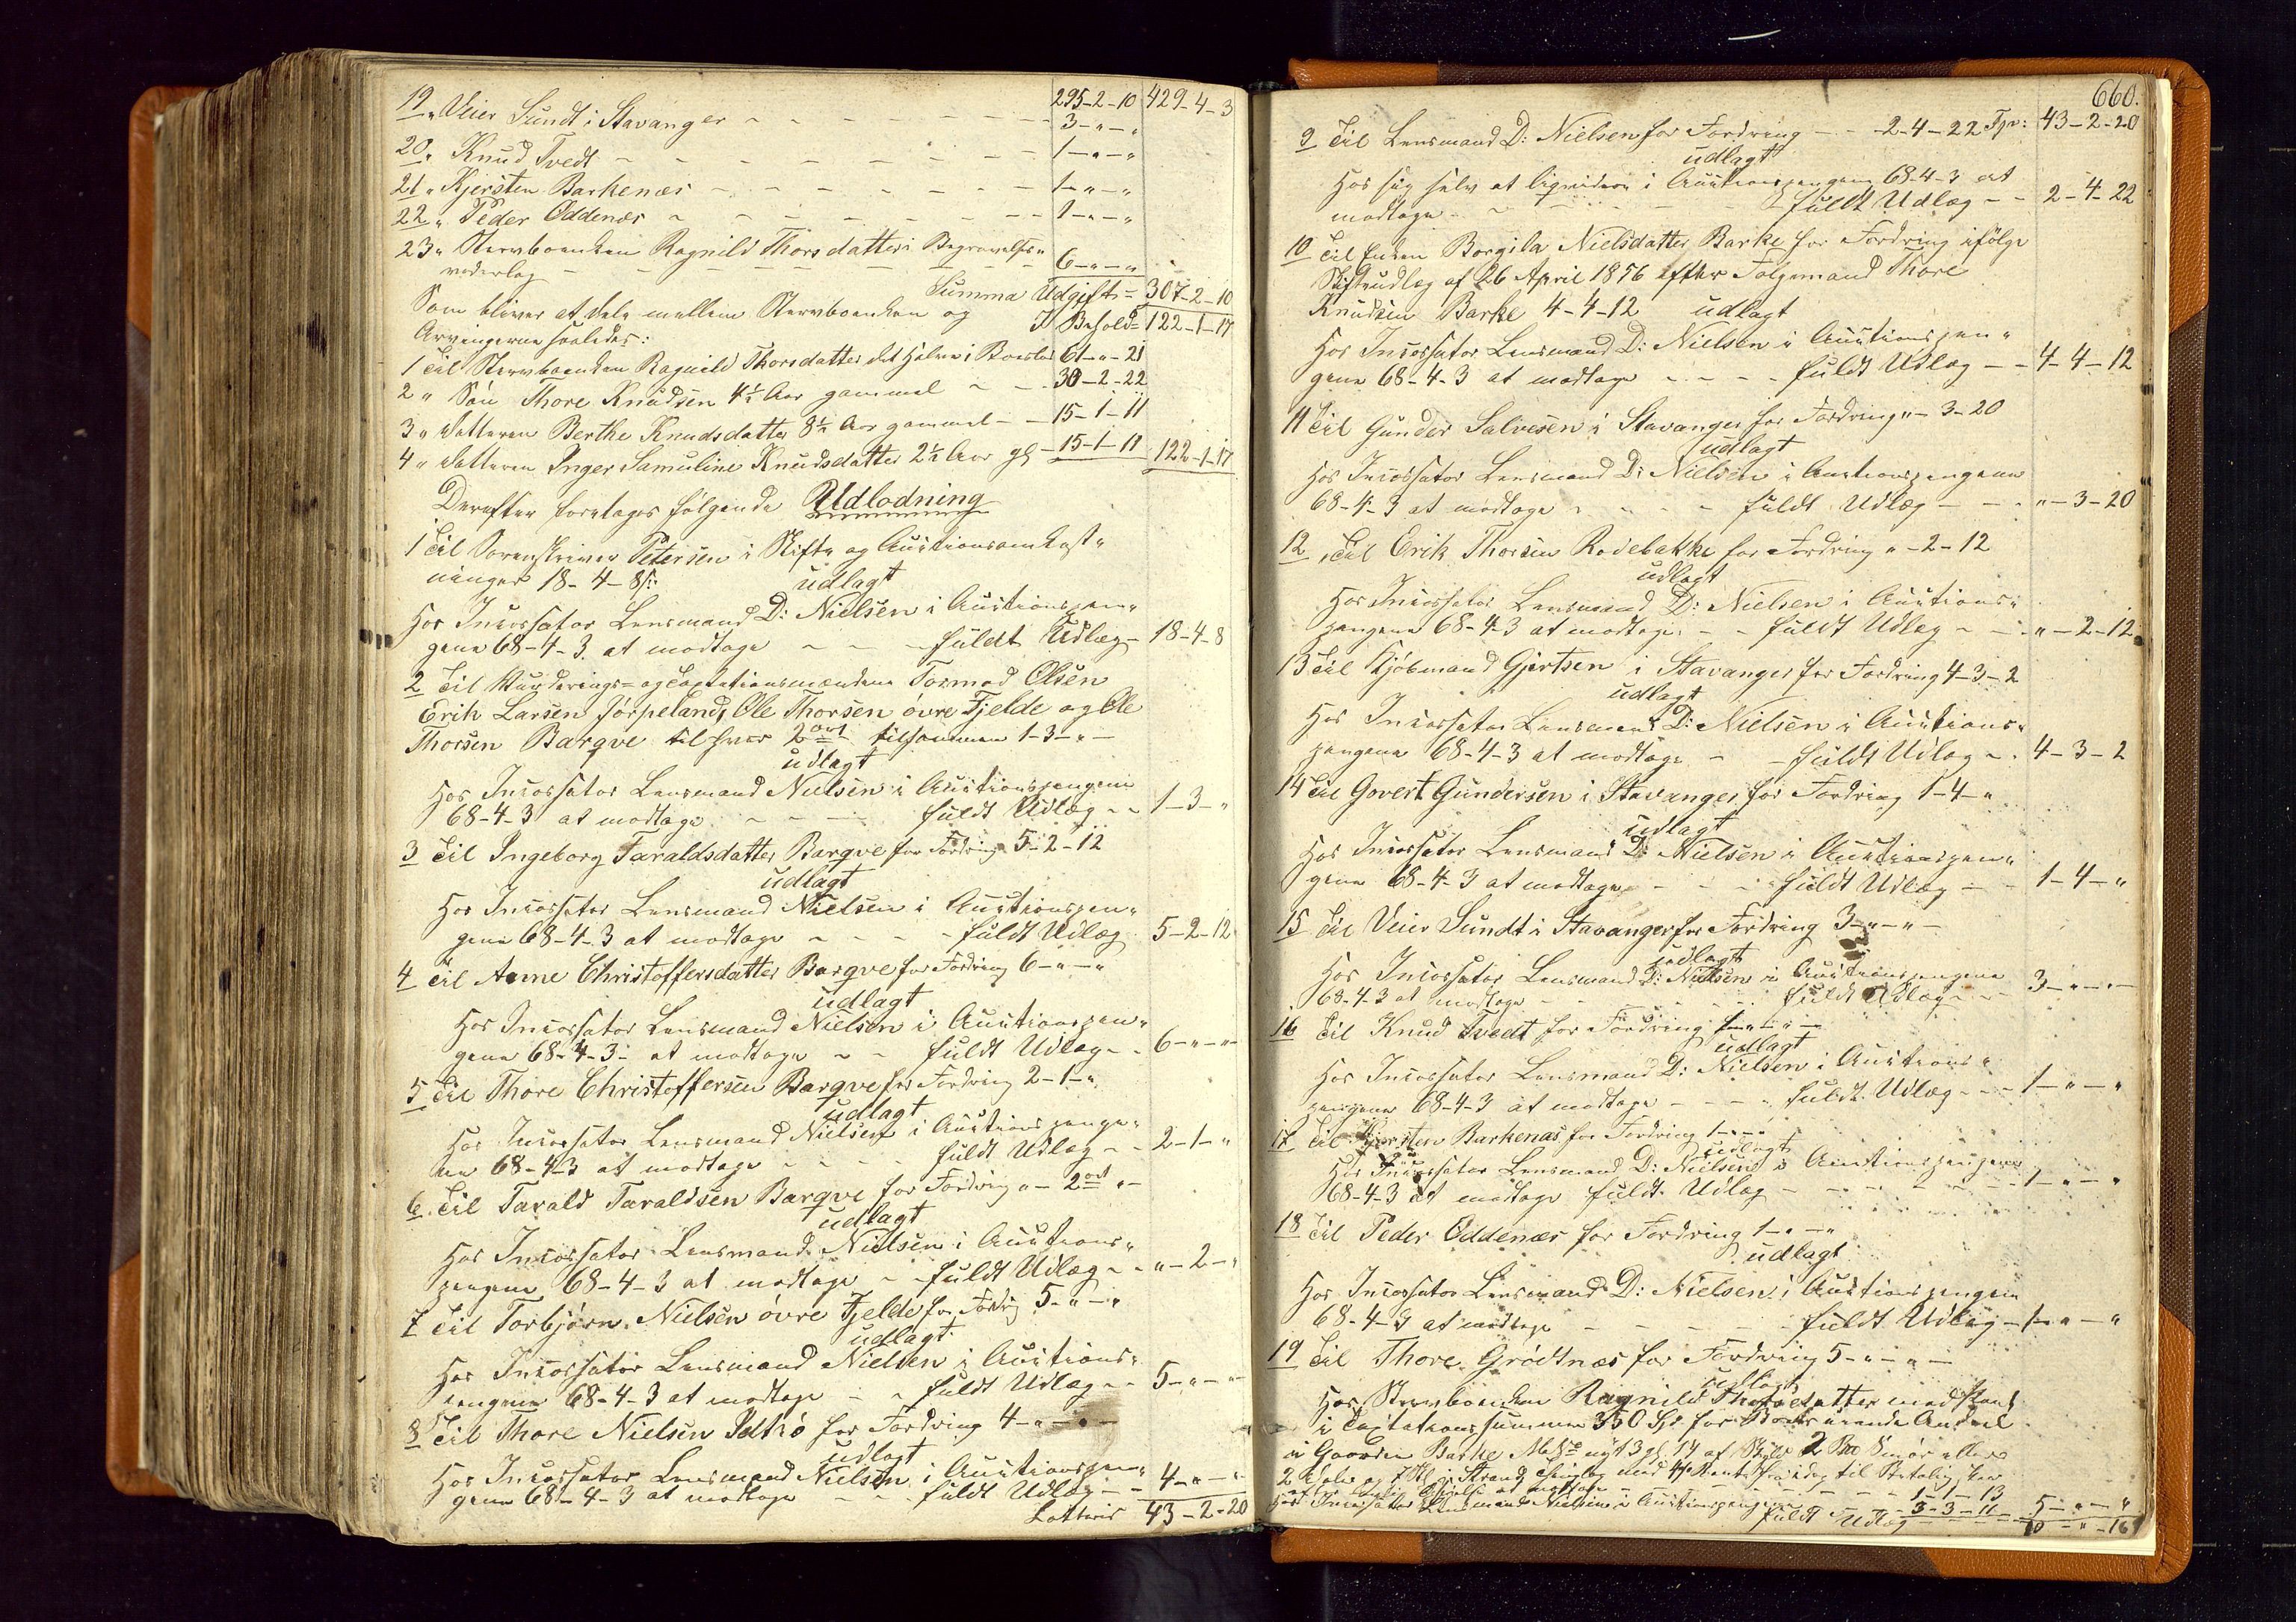 295-2-10 429-4-3
19 " Veier Sundt i Stavanger - - - 3-"-"
20 " Knud Tvedt - - - 1-"-"
21 " Kjersten Barkenæs - - - 1-"-"
22 " Peder Oddenæs - - - 1-"-"
23 " Stervboenken Ragnild Thorsdatters Begravelses"
vederlag - - - 6-"-"
Summa Udgift = 307-2-10
Som bliver at dele mellem Stervboenken og I Behold = 122-1-17
Arvingerne saaledes:
1 Til Stervboenken Ragnild Thorsdatter det halve i Boeslod 61-"-21
2 " Søn Thore Knudsen 4½ Aar gammel - - 30-2-22
3 " datteren Berthe Knudsdatter 8½ Aar gammel - - 15-1-11
4 " datteren Inger Samuline Knudsdatter 2½ Aar gl - 15-1-11 122-1-17
Derefter foretages følgende Udlodning
1 Til Sorenskriver Petersen i Skifte og Auctionsomkost"
ninger 18-4-8 s: udlagt
Hos Incassator Lensmand D: Nielsen i Auctionspen"
gene 68-4-3. at modtage - - - fuldt Udlæg - 18-4-8
2 Til Vurderings= og Taxtationsmændene Tormod Olsen
Erik Larsen Jørpeland, Ole Thorsen øvre Fjelde og Ole
Thorsen Barqve til hver 2 ort tilsammen 1-3-"-
udlagt
Hos Incassator Lensmand Nielsen i Auctionspengene
68-4-3 at modtage - - - fuldt Udlæg - - 1-3-"
3 Til Ingeborg Taraldsdatter Barqve for Fordring 5-2-12
udlagt
Hos Incassator Lensmand Nielsen i Auctionspen"
gene 68-4-3 at modtage - - - fuldt Udlæg 5-2-12
4 Til Anne Christoffersdatter Barqve for Fordring 6-"-"
udlagt
Hos Incassator Lensmand Nielsen i Auctionspen"
gene 68-4-3- at modtage - - fuldt Udlæg - - 6-"-"
5 Til Thore Christoffersen Barqve for Fordring 2-1-"
udlagt
Hos Incassator Lensmand Nielsen i Auctionspenge"
ne 68-4-3 at modtage - - - fuldt Udlæg - - 2-1-"
6 Til Tarald Taraldsen Barqve for Fordring "-2 ort "-
udlagt
Hos Incassator Lensmand Nielsen i Auctions"
pengene 68-4-3 at modtage - - fuldt Udlæg - - "-2-"
7 Til Torbjørn Nielsen øvre Fjelde for Fordrg 5-"-"
udlagt
Hos Incassator Lensmand Nielsen i Auctions"
pengene 68-4-3 at modtage - - fuldt Udlæg - - 5-"-"
8 Til Thore Nielsen Idthø for Fordring 4-"-"-
udlagt
Hos Incassator Lensmand Nielsen i Auctionspen"
gene 68-4-3 at modtage - - fuldt Udlæg - - 4-"-"
Latteris 43-2-20
660.
Tpr: 43-2-20
9 Til Lensmand D: Nielsen for Fordring - - 2-4-22
udlagt
Hos sig selv at liqvidere i Auctionspengene 68-4-3 at
modtage - - - fuldt Udlæg - - 2-4-22
10 Til Enken Borgila Nielsdatter Barke for Fordring ifølge
Skifteudlæg af 26 April 1856 efter Følgemand Thore
Knudsen Barke 4-4-12 udlagt
Hos Incassator Lensmand D: Nielsen i Auctionspen"
gene 68-4-3 at modtage - - - fuldt Udlæg - - 4-4-12
11 Til Gunder Salvesen i Stavanger for Fordring "-3-20
udlagt
Hos Incassator Lensmand D: Nielsen i Auctionspengene
68-4-3 at modtage - - - fuldt Udlæg - - "-3-20
12 Til Erik Thorsen Rodebakke for Fordring "-2-12
udlagt
Hos Incassator Lensmand D: Nielsen i Auctions"
pengene 68-4-3 at modtage - - fuldt Udlæg - - "-2-12
13 Til Kjøbmand Gjertsen i Stavanger for Fordring 4-3-2
udlagt
Hos Incassator Lensmand D: Nielsen i Auctions"
pengene 68-4-3 at modtage - - fuldt Udlæg - - 4-3-2
14 Til Govert Gundersen i Stavanger for Fordring 1-4-"
udlagt
Hos Incassator Lensmand D: Nielsen i Auctionspen"
gene 68-4-3 at modtage - - - fuldt Udlæg - - 1-4-"
15 Til Veier Sundt i Stavanger for Fordring 3-"-"-
udlagt
Hos Incassator Lensmand D: Nielsen i Auctionspengene
68-4-3 at modtage - - - fuldt Udlæg - - 3-"-"
16 Til Knud Tvedt for Fordring 1-"-"-
udlagt
Hos Incassator Lensmand D: Nielsen i Auctions"
pengene 68-4-3 at modtage - - - fuldt Udlæg - - 1-"-"
17 Til Kjersten Barkenæs for Fordring 1-"-"
udlagt
Hos Incassator Lensmand D: Nielsen i Auctionspengene
68-4-3 at modtage fuldt Udlæg - - - 1-"-"
18 Til Peder Oddenæs for Fordring 1-"-"
udlagt
Hos Incassator Lensmand D: Nielsen i Auctionspengene
68-4-3 at modtage - - - fuldt Udlæg - 1-"-"
19 Til Thore Grødtnæs for Fordring 5-"-"-
udlagt
Hos Stervboenken Ragnild Thorsdatter mod Pant
i Taxtationssummen 350 Spd for Boets eiende Andeel
i Gaarden Barke M No nyt 3 gl 14 af Skyld 2 Smør eller
2 Daler og i Strand Thinglag med 4% Rente fra idag til Betaling skeer
efter lovlig at modtage - - - 1-1-13
Hos Incassator Lensmand Nielsen i Auctionspengene - - 3-3-11 5-"-"
fuldt Udlæg - - 70-"-16